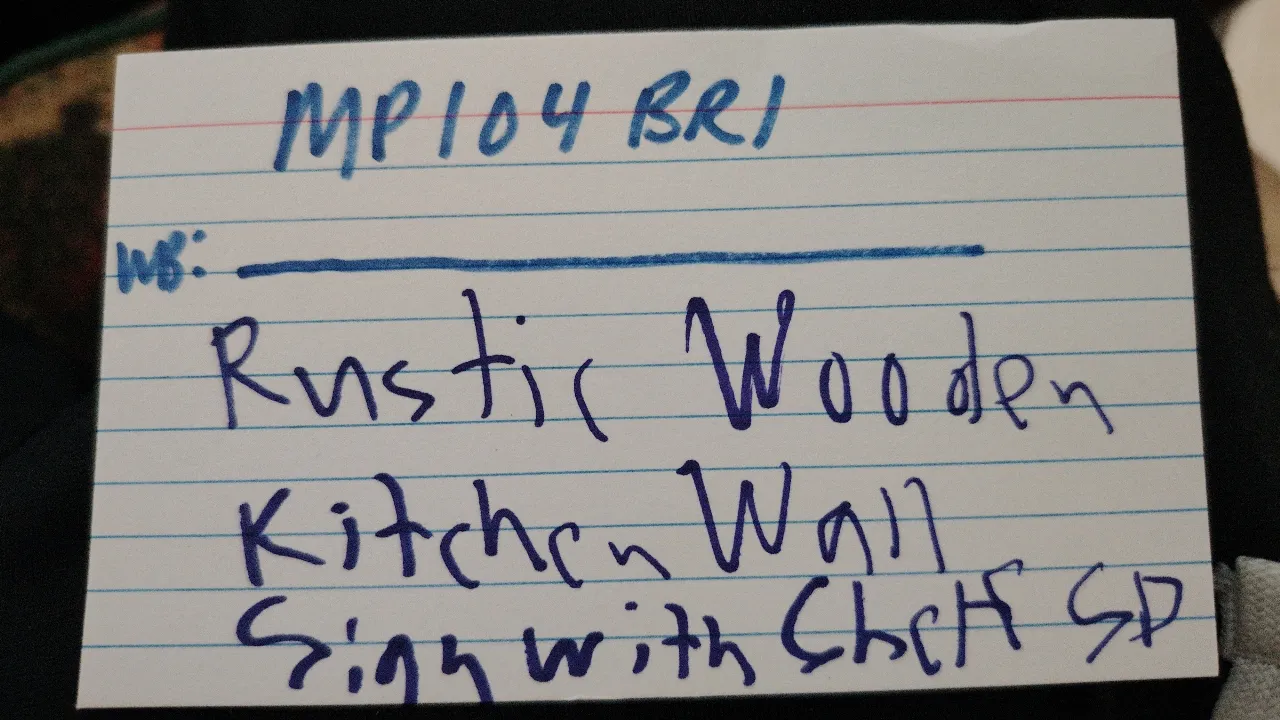 MP104 BR1
W8:
Rustic Wooden
Kitchen Wall
Sign with Shelf SD